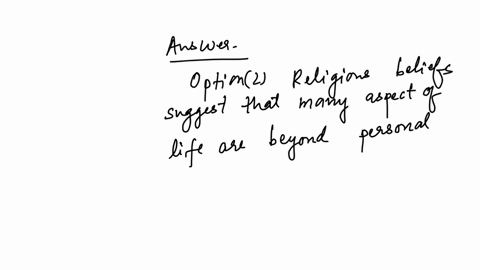 Answer.
Option(2) Religious beliefs
suggest that many aspect of
life are beyond personal